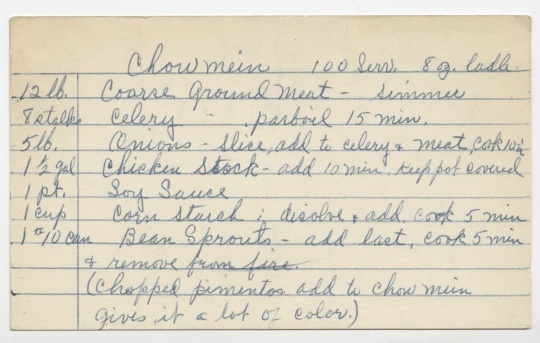 Chow mein 100 Serv. 8 oz. ladle
12 lb. Coarse Ground Meat - simmer
8 stalks celery - parboil 15 min.
5 lb. Onions - slice, add to celery & meat, cook 10 min
1 1/2 gal Chicken Stock - add 10 min. keep pot covered
1 pt. Soy Sauce
1 cup Corn Starch ; disolve & add, cook 5 min
1 # 10 can Bean Sprouts - add last, cook 5 min
& remove from fire.
(Chopped pimentos add to chow mein
gives it a lot of color.)